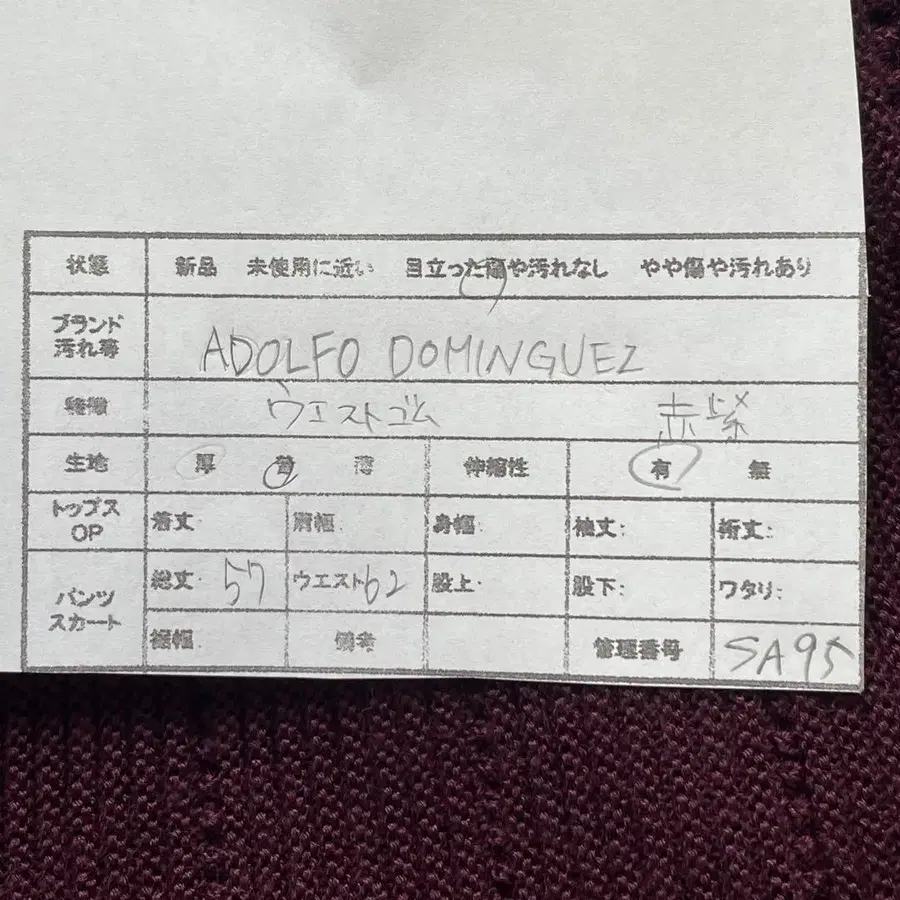 状態 新品 未使用に近い 目立った傷や汚れなし やや傷や汚れあり
ブランド
汚れ等 ADOLFO DOMINGUEZ
特徴 ウエストゴム 赤紫
生地 厚 普 薄 伸縮性 有 無
トップス
OP 着丈: 肩幅: 身幅: 袖丈: 裄丈:
パンツ
スカート 総丈: 57 ウエスト62 股上: 股下: ワタリ:
裾幅: 備考 管理番号 SA95